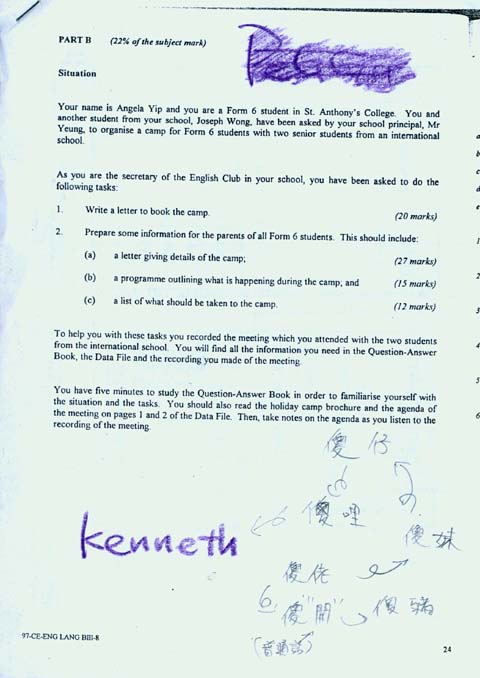 PART B (22% of the subject mark)
Situation
Your name is Angela Yip and you are a Form 6 student in St. Anthony's College. You and
another student from your school, Joseph Wong, have been asked by your school principal, Mr
Yeung, to organise a camp for Form 6 students with two senior students from an international
school.
As you are the secretary of the English Club in your school, you have been asked to do the
following tasks:
1. Write a letter to book the camp. (20 marks)
2. Prepare some information for the parents of all Form 6 students. This should include:
(a) a letter giving details of the camp; (27 marks)
(b) a programme outlining what is happening during the camp; and (15 marks)
(c) a list of what should be taken to the camp. (12 marks)
To help you with these tasks you recorded the meeting which you attended with the two students
from the international school. You will find all the information you need in the Question-Answer
Book, the Data File and the recording you made of the meeting.
You have five minutes to study the Question-Answer Book in order to familiarise yourself with
the situation and the tasks. You should also read the holiday camp brochure and the agenda of
the meeting on pages 1 and 2 of the Data File. Then, take notes on the agenda as you listen to the
recording of the meeting.
傻仔
傻哩
傻妹
kenneth
傻佬
傻"開"
(普通話)
97-CE-ENG LANG BIII-8
24